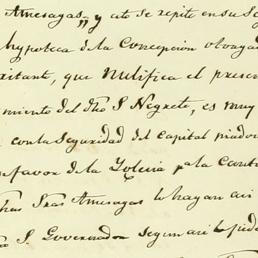 Amesagas,, y esto se repite en su Es
hypoteca de la Concepcion otorgad
xistente, que Nulifica el presen
miento del dho S. Negrete, es muy
con la seguridad del Capital piados
favor de la Yglecia p.
has Sras Amesagas lo hagan asi
S. Governador segun asi lo pide